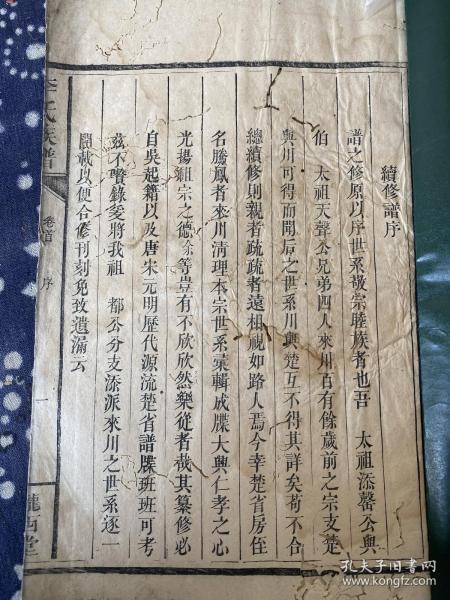 續修譜序
譜之修原以序世系敬宗睦族者也吾 太祖添馨公與
伯 太祖天聲公兄弟四人來川百有餘歲前之宗支楚
與川可得而聞后之世系川與楚互不得其詳矣苟不合
總續修則親者疏疏者遠相視如路人焉今幸楚省房侄
名騰鳳者來川清理本宗世系彙輯成牒大興仁孝之心
光揚祖宗之德余等豈有不欣欣然樂從者哉其纂修必
自吳起籍以及唐宋元明歷代源流楚省譜牒班班可考
茲不贅錄爰將我祖 都公分支添派來川之世系逐一
開載以便合修刊刻免致遺漏云
李氏族譜
卷首 序
一
隴西堂
孔夫子旧书网